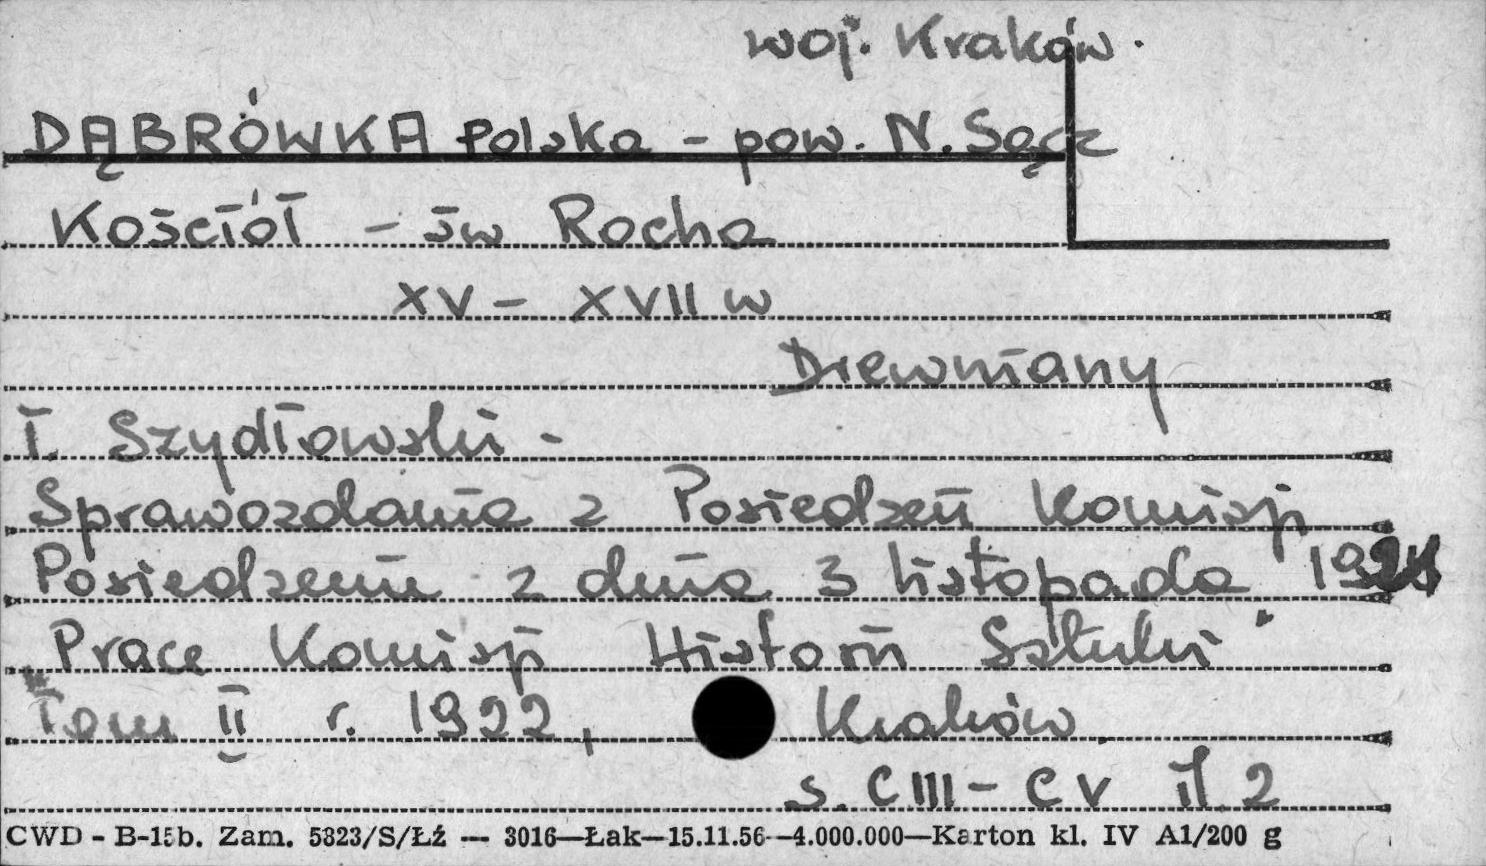 woj. Kraków.
DĄBRÓWKA Polska – pow. N. Sącz
Kościół – św Rocha
XV – XVII w
Drewniany
T. Szydłowski –
Sprawozdanie z Posiedzeń Komisji
Posiedzenie z dnia 3 listopada
Prace Komisji Historii Sztuki"
Tom II r. 1922, Kraków
s. CIII – CV il 2
CWD - B-15b. Zam. 5823/S/Łź — 3016—Łak—15.11.56—4.000.000—Karton kl. IV A1/200 g